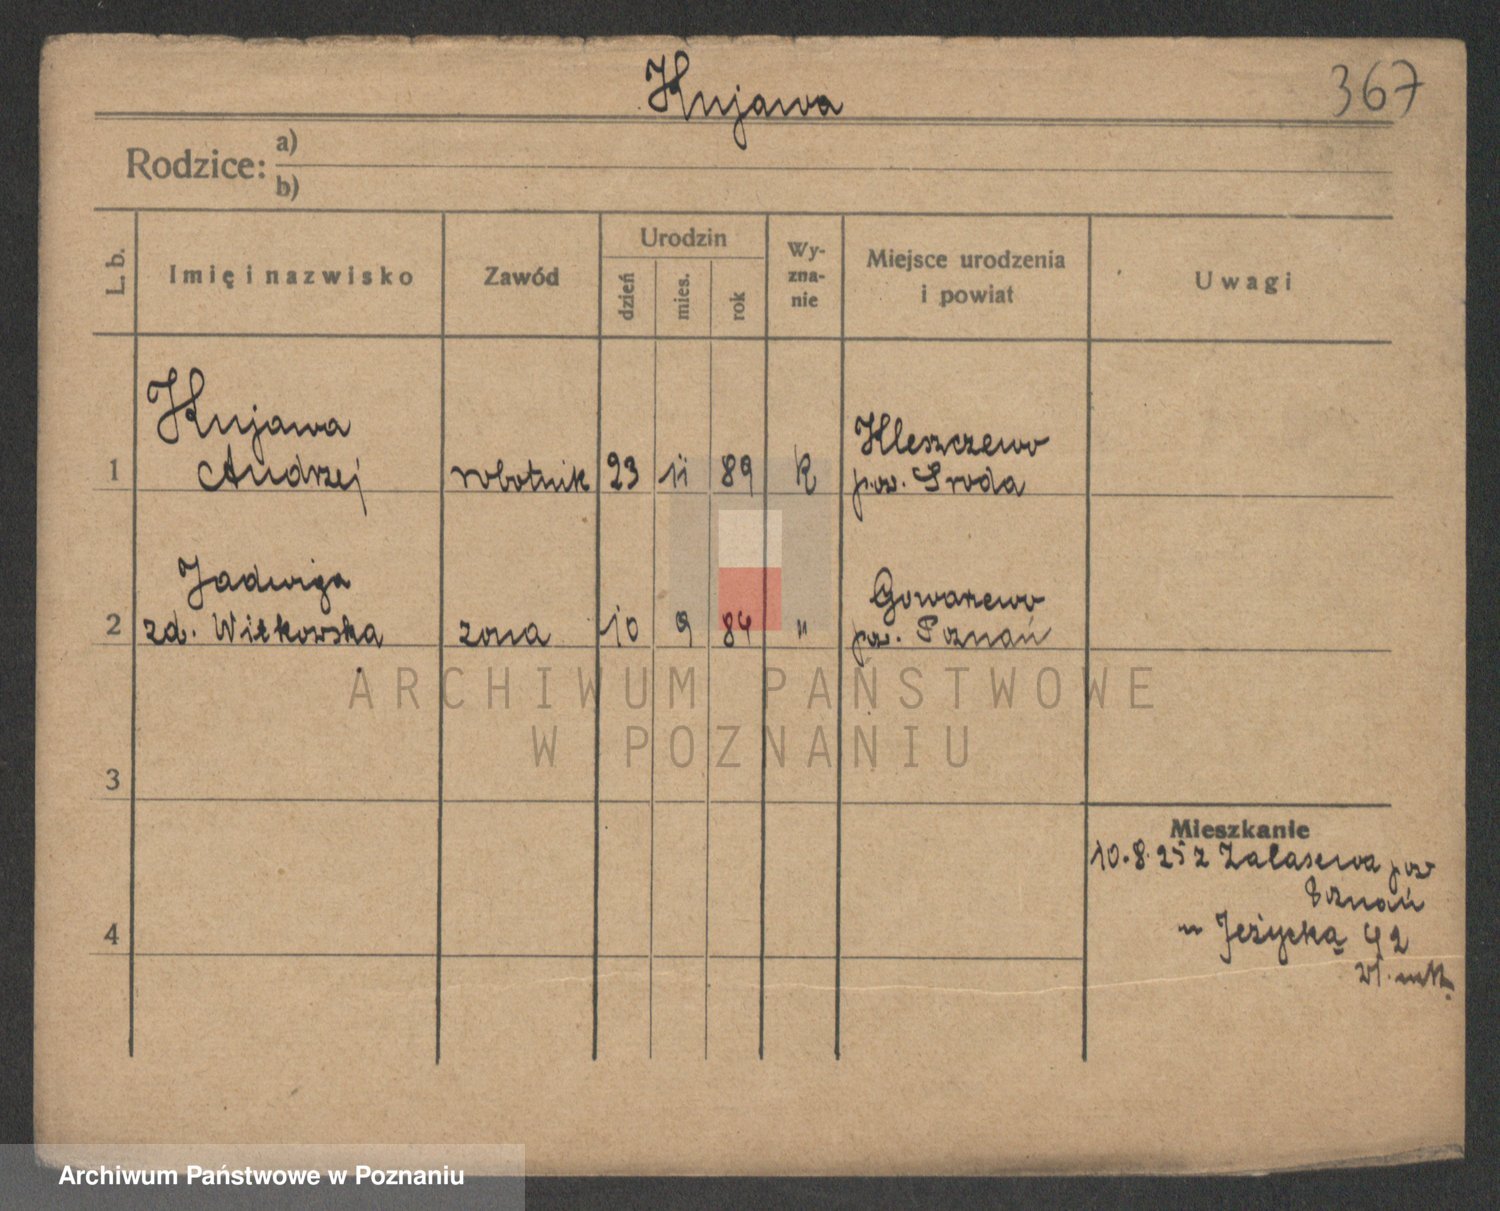 Kujawa
367
Rodzice: a)
b)
L. b.
Imię i nazwisko
Zawód
Urodzin
dzień
mies.
rok
Wy-
zna-
nie
Miejsce urodzenia
i powiat
Uwagi
1
Kujawa
Andrzej
robotnik
23
11
89
K
Kleszczewo
pow. Sroda
2
Jadwiga
zd. Witkowska
zona
10
9
84
"
Gowarzewo
pow. Poznań
3
4
Mieszkanie
10.8.25 z Zalasewa pow
Poznań
Jeżycka 42
ARCHIWUM PAŃSTWOWE
W POZNANIU
Archiwum Państwowe w Poznaniu